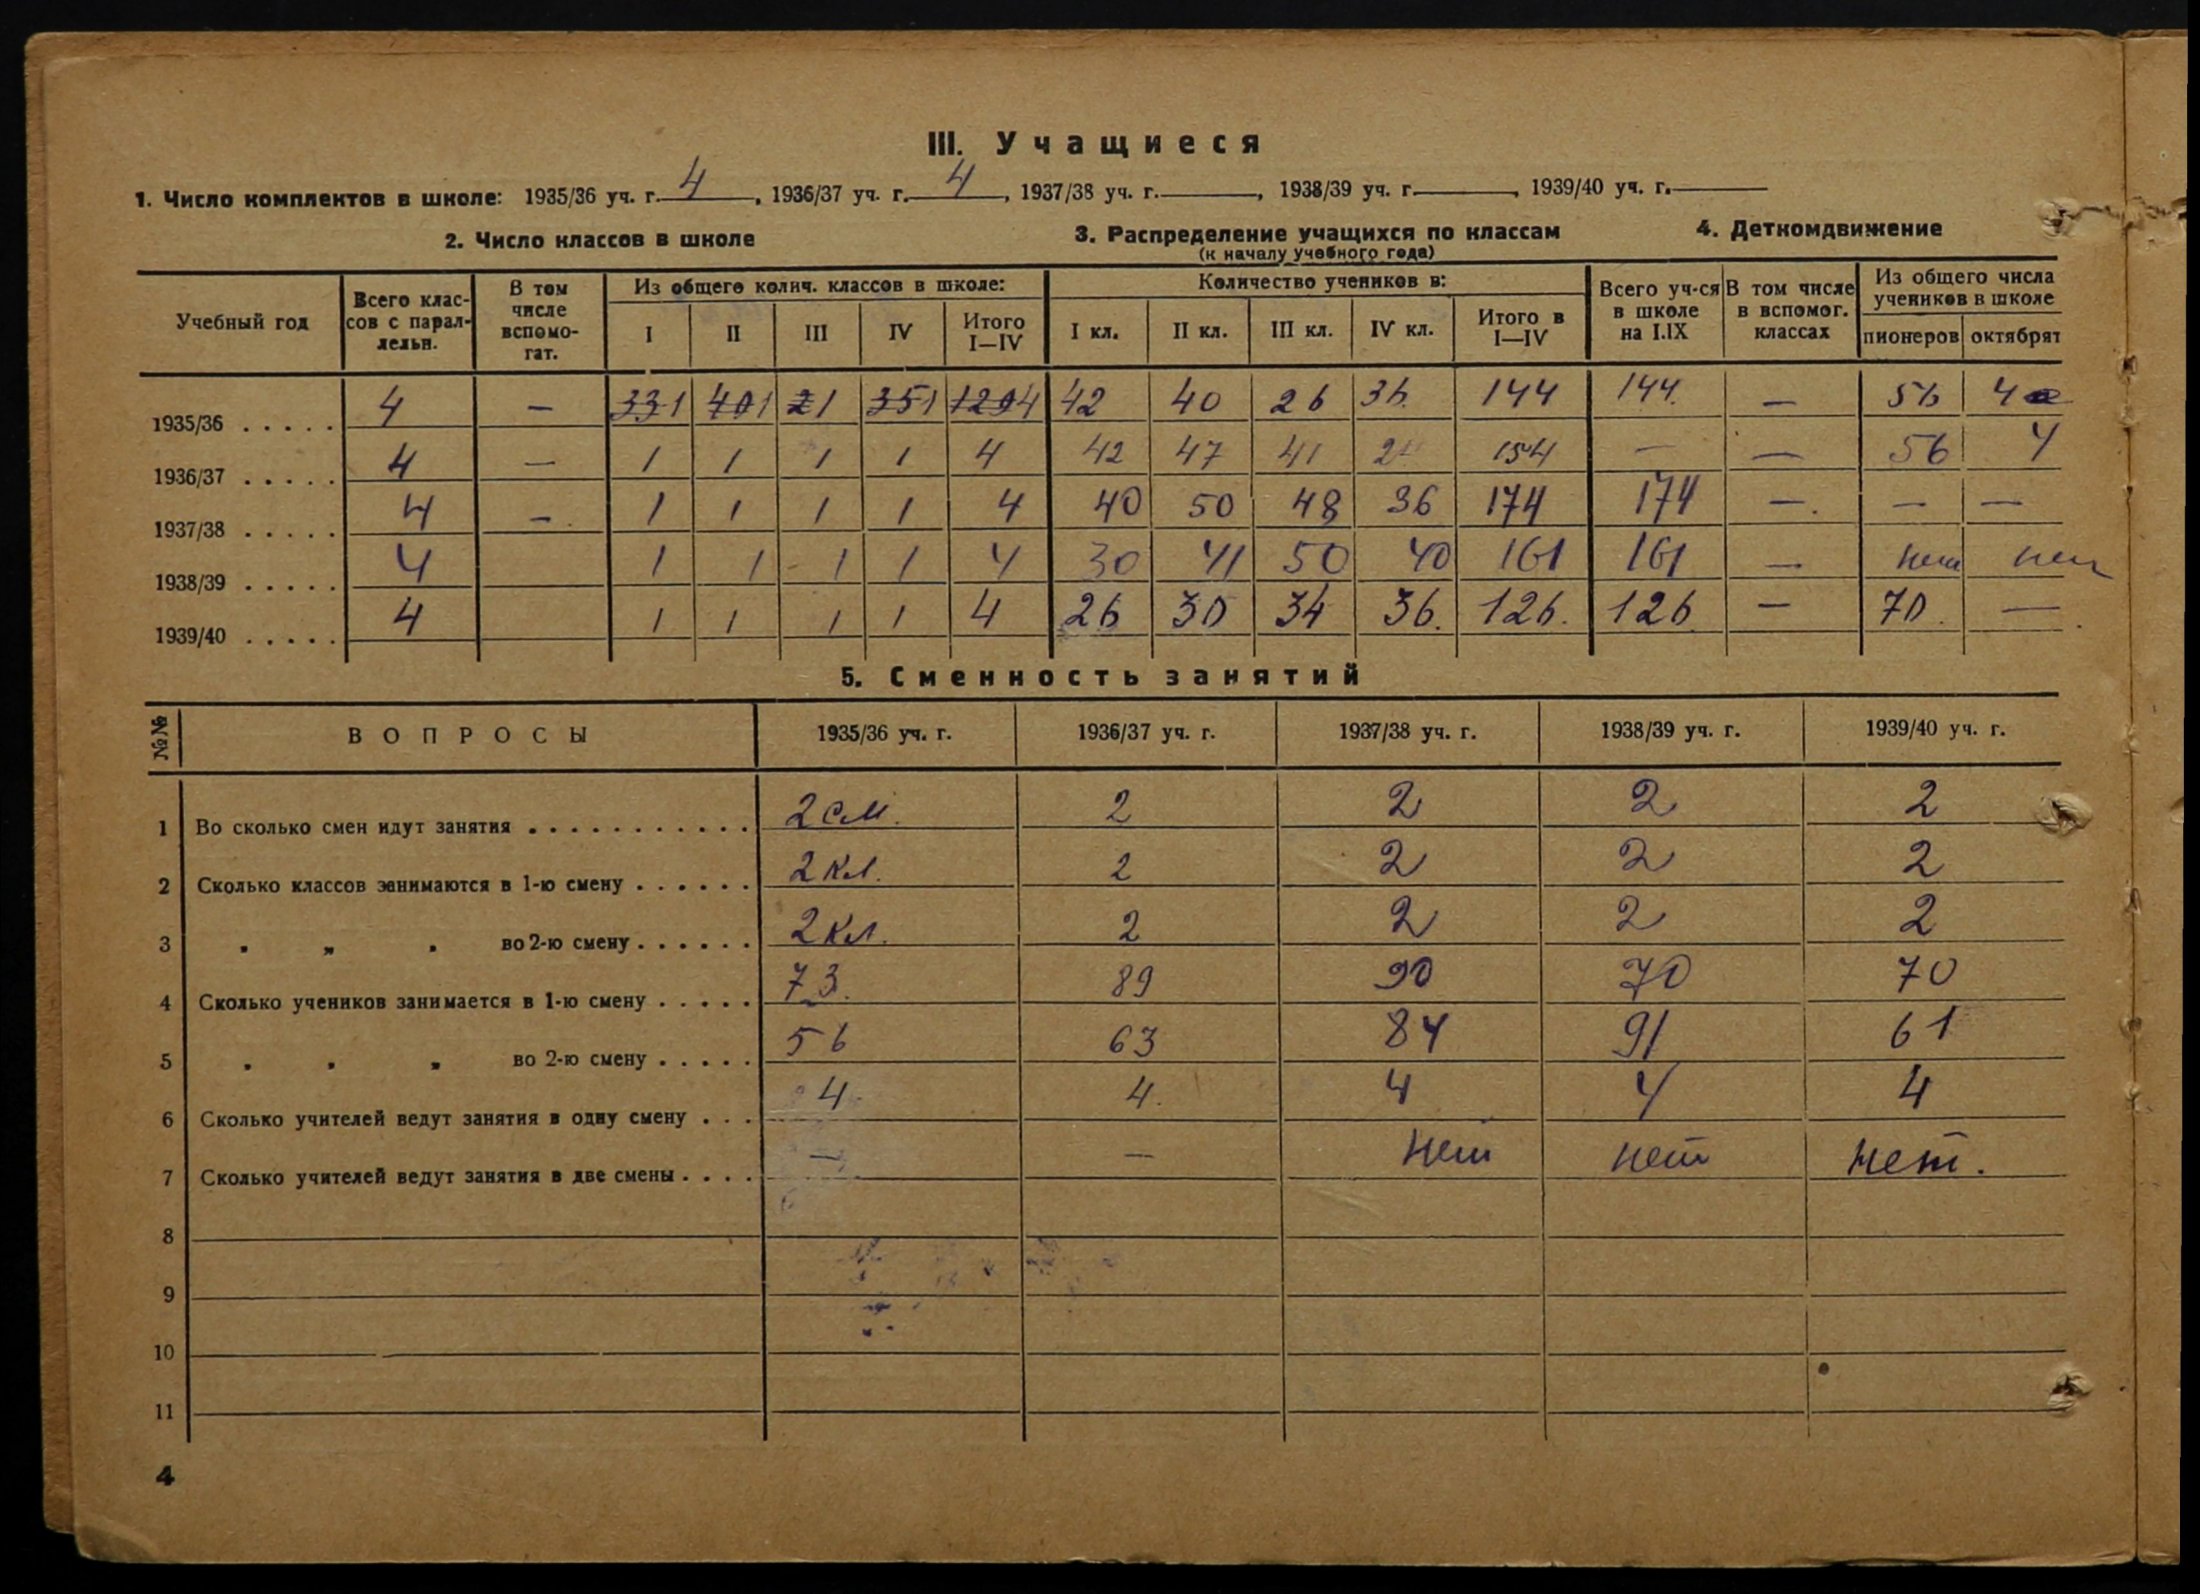 III. Учащиеся
1. Число комплектов в школе: 1935/36 уч. г. 4, 1936/37 уч. г. 4, 1937/38 уч. г. , 1938/39 уч. г. , 1939/40 уч. г.
2. Число классов в школе 3. Распределение учащихся по классам 4. Деткомдвижение
(к началу учебного года)
Учебный год Всего классов с параллельн. В том числе вспомогат. Из общего колич. классов в школе: Количество учеников в: Всего уч-ся в школе на I.IX В том числе в вспомог. классах Из общего числа учеников в школе
I II III IV Итого I—IV I кл. II кл. III кл. IV кл. Итого в I—IV пионеров октябрят
1935/36 . . . . . 4 — 1 1 1 1 4 42 40 26 36. 144 144. — 56 4
1936/37 . . . . . 4 — 1 1 1 1 4 42 47 41 154 — — 56 4
1937/38 . . . . . 4 — 1 1 1 1 4 40 50 48 36 174 174 — — —
1938/39 . . . . . 4 1 1 1 1 4 30 41 50 40 161 161 — нет нет
1939/40 . . . . . 4 1 1 1 1 4 26 30 34 36. 126. 126. — 70. —
5. Сменность занятий
№№ ВОПРОСЫ 1935/36 уч. г. 1936/37 уч. г. 1937/38 уч. г. 1938/39 уч. г. 1939/40 уч. г.
1 Во сколько смен идут занятия . . . . . . . . . . . 2 см. 2 2 2 2
2 Сколько классов занимаются в 1-ю смену . . . . . . 2 кл. 2 2 2 2
3 " " " во 2-ю смену . . . . . . 2 кл. 2 2 2 2
4 Сколько учеников занимается в 1-ю смену . . . . . 73. 89 90 70 70
5 " " " во 2-ю смену . . . . . 56 63 84 91 61
6 Сколько учителей ведут занятия в одну смену . . . 4. 4. 4 4 4
7 Сколько учителей ведут занятия в две смены . . . . — — нет нет нет.
8
9
10
11
4